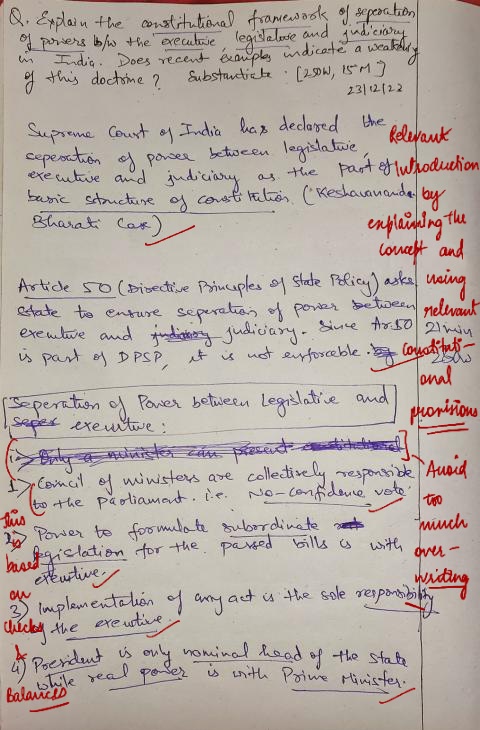 Q. Explain the constitutional framework of seperation
of powers b/w the executive legislative and judiciary
in India. Does recent examples indicate a weakening
of this doctrine? Substantiate. [250W, 15M]
23/12/22
Supreme Court of India has declared the
seperation of power between legislative,
executive and judiciary as the part of
basic structure of constitution. ('Keshavananda
Bharati Case)
Relevant
Introduction
by
explaining the
concept and
using
relevant
constituti-
onal
provisions
Article 50 (Directive Principles of State Policy) asks
state to ensure seperation of power between
executive and judiciary. Since Ar. 50
is part of DPSP, it is not enforcable.
21 min
250W
Seperation of Power between Legislative and
executive:
1> Only a minister can present
1> Council of ministers are collectively responsible
to the Parliament. i.e. No-confidence vote.
2> Power to formulate subordinate
legislation for the passed bills is with
executive.
3) Implementation of any act is the sole responsibility
of the executive.
4) President is only nominal head of the state
while real power is with Prime Minister.
this
is
based
on
checks
&
Balances
Avoid
too
much
over-
writing